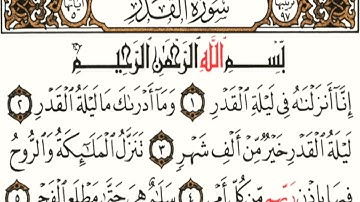 سُورَةُ القَدْرِ
بِسْمِ اللَّهِ الرَّحْمَٰنِ الرَّحِيمِ
إِنَّا أَنزَلْنَٰهُ فِى لَيْلَةِ الْقَدْرِ ١ وَمَا أَدْرَىٰكَ مَا لَيْلَةُ الْقَدْرِ ٢
لَيْلَةُ الْقَدْرِ خَيْرٌ مِّنْ أَلْفِ شَهْرٍ ٣ تَنَزَّلُ الْمَلَٰٓئِكَةُ وَالرُّوحُ
فِيهَا بِإِذْنِ رَبِّهِم مِّن كُلِّ أَمْرٍ ٤ سَلَٰمٌ هِىَ حَتَّىٰ مَطْلَعِ الْفَجْرِ ٥